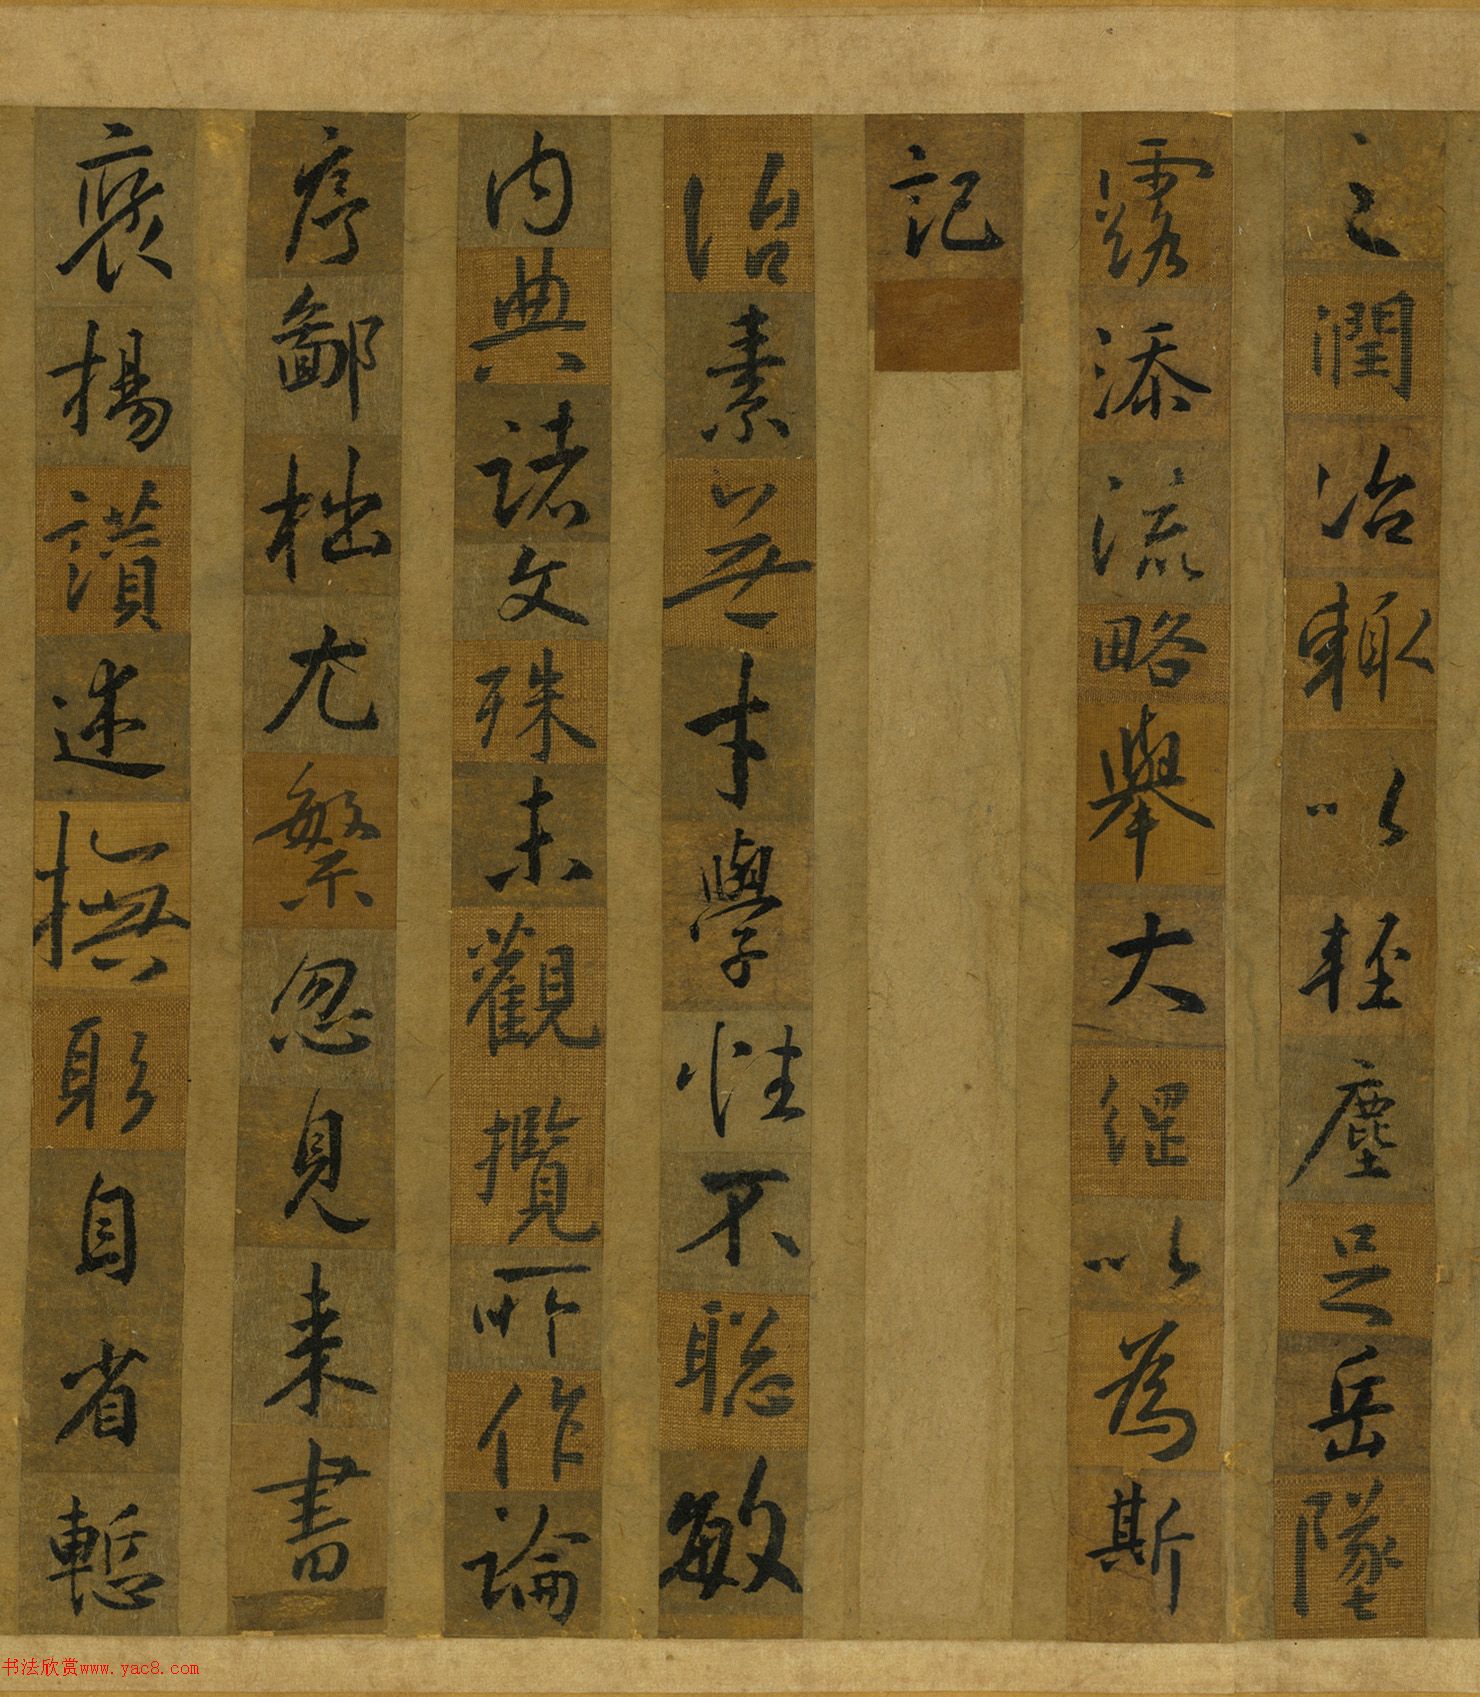 之潤冶輙以輕塵足岳墜
露添流略舉大綱以為斯
記
治素無才學性不聡敏
内典諸文殊未觀攬所作論
序鄙拙尤繁忽見来書
褒揚讃述撫躬自省慙
书法欣赏www.yac8.com